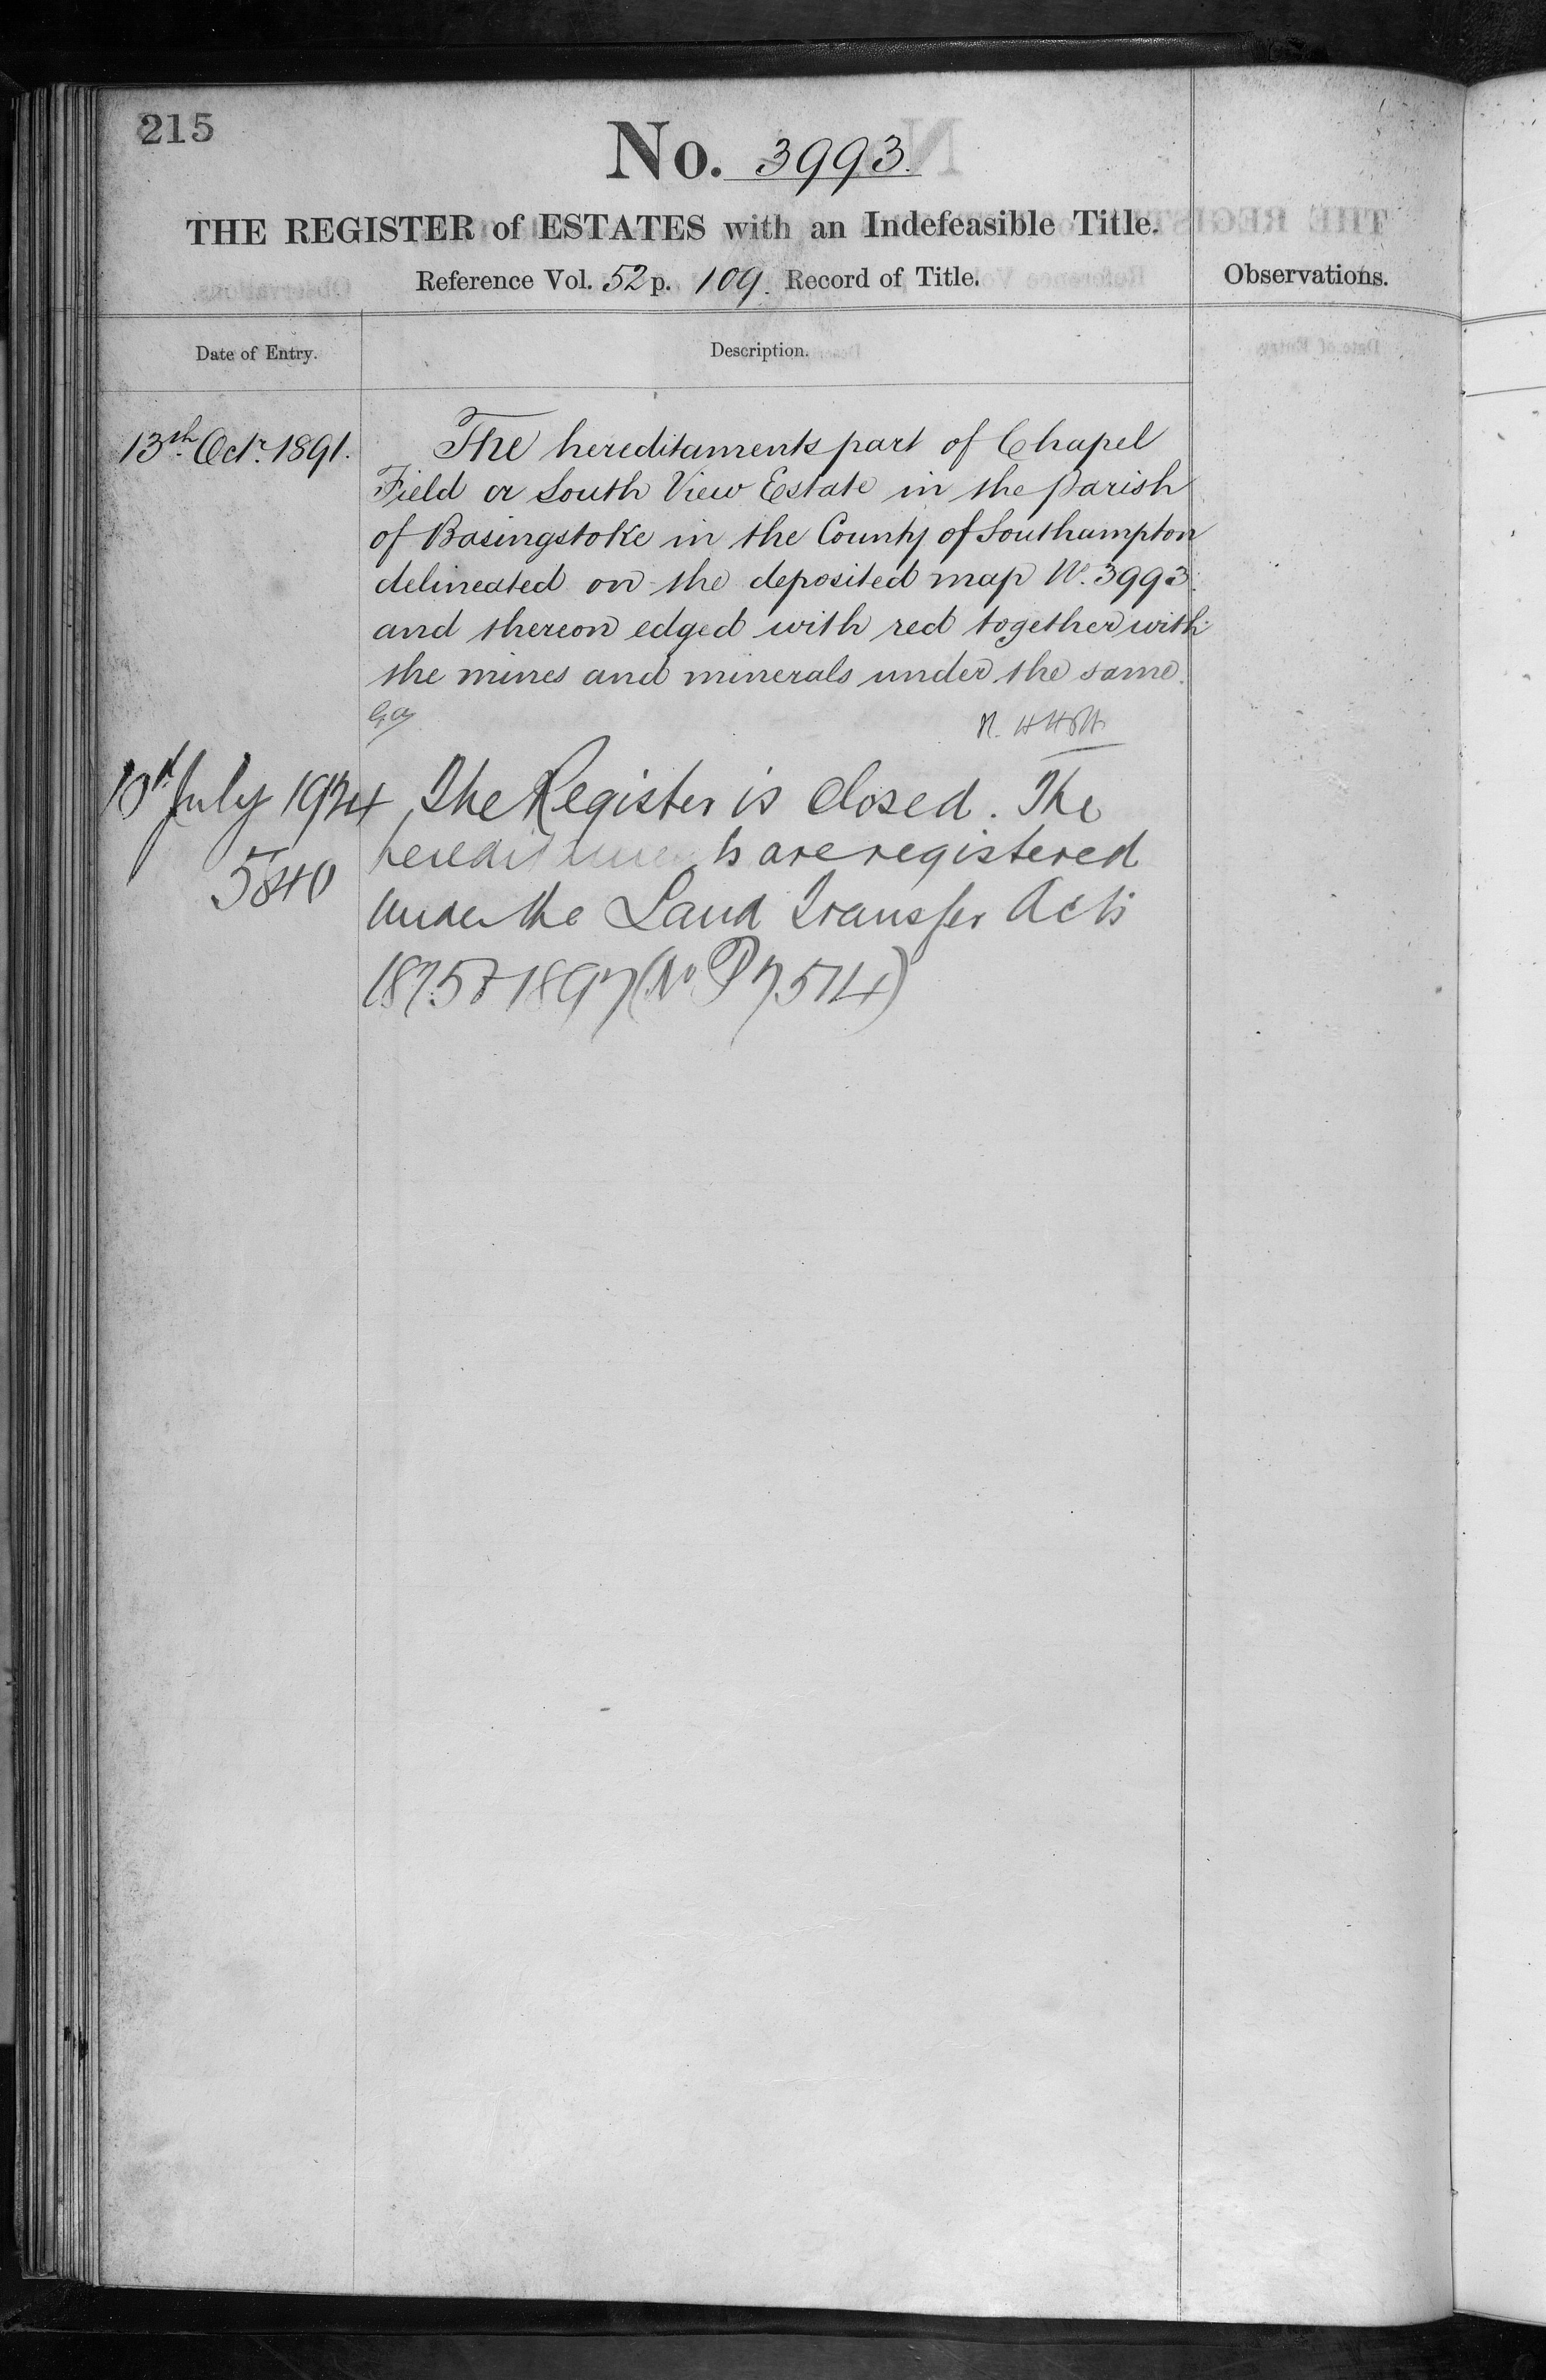 215
No. 3993.
THE REGISTER of ESTATES with an Indefeasible Title.
Reference Vol. 52 p. 109. Record of Title.
Observations.
Date of Entry.
Description.
13th Octr. 1891.
The hereditaments part of Chapel
Field or South View Estate in the Parish
of Basingstoke in the County of Southampton
delineated on the deposited map No. 3993
and thereon edged with red together with
the mines and minerals under the same.
July 1924
The Register is closed. The
hereditaments are registered
5840
under the Land Transfer Acts
1875 & 1897 (No P 7514)